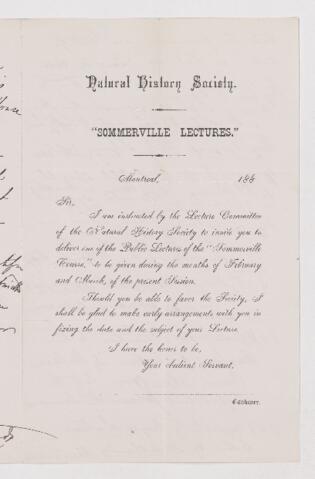 Natural History Society.
"SOMMERVILLE LECTURES."
Montreal, 186
Sir,
I was instructed by the Lecture Committee
of the Natural History Society to invite you to
deliver one of the Public Lectures of the "Sommerville
Course," to be given during the months of February
and March, of the present Session.
Should you be able to favor the Society, I
shall be glad to make early arrangements with you in
fixing the date and the subject of your Lecture.
I have the honor to be,
Your obedient Servant,